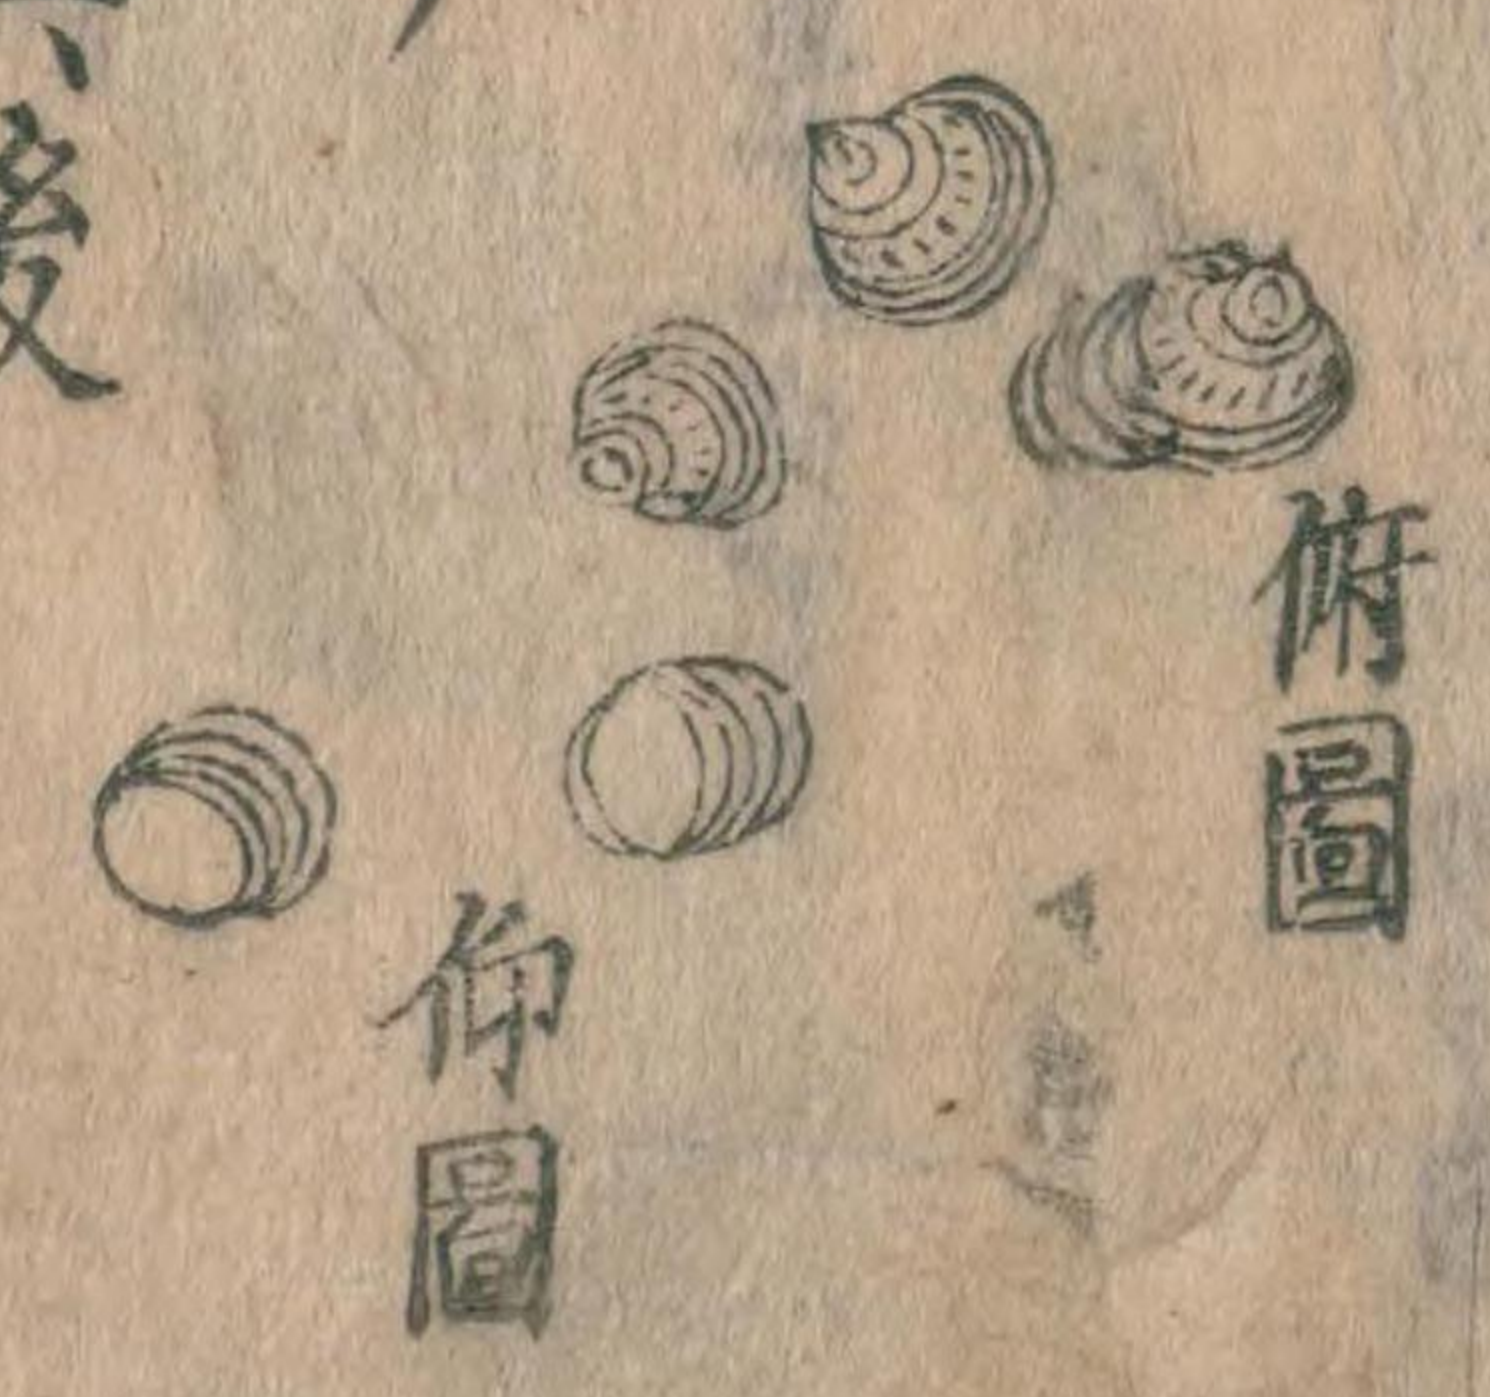 俯圖
仰圖
後